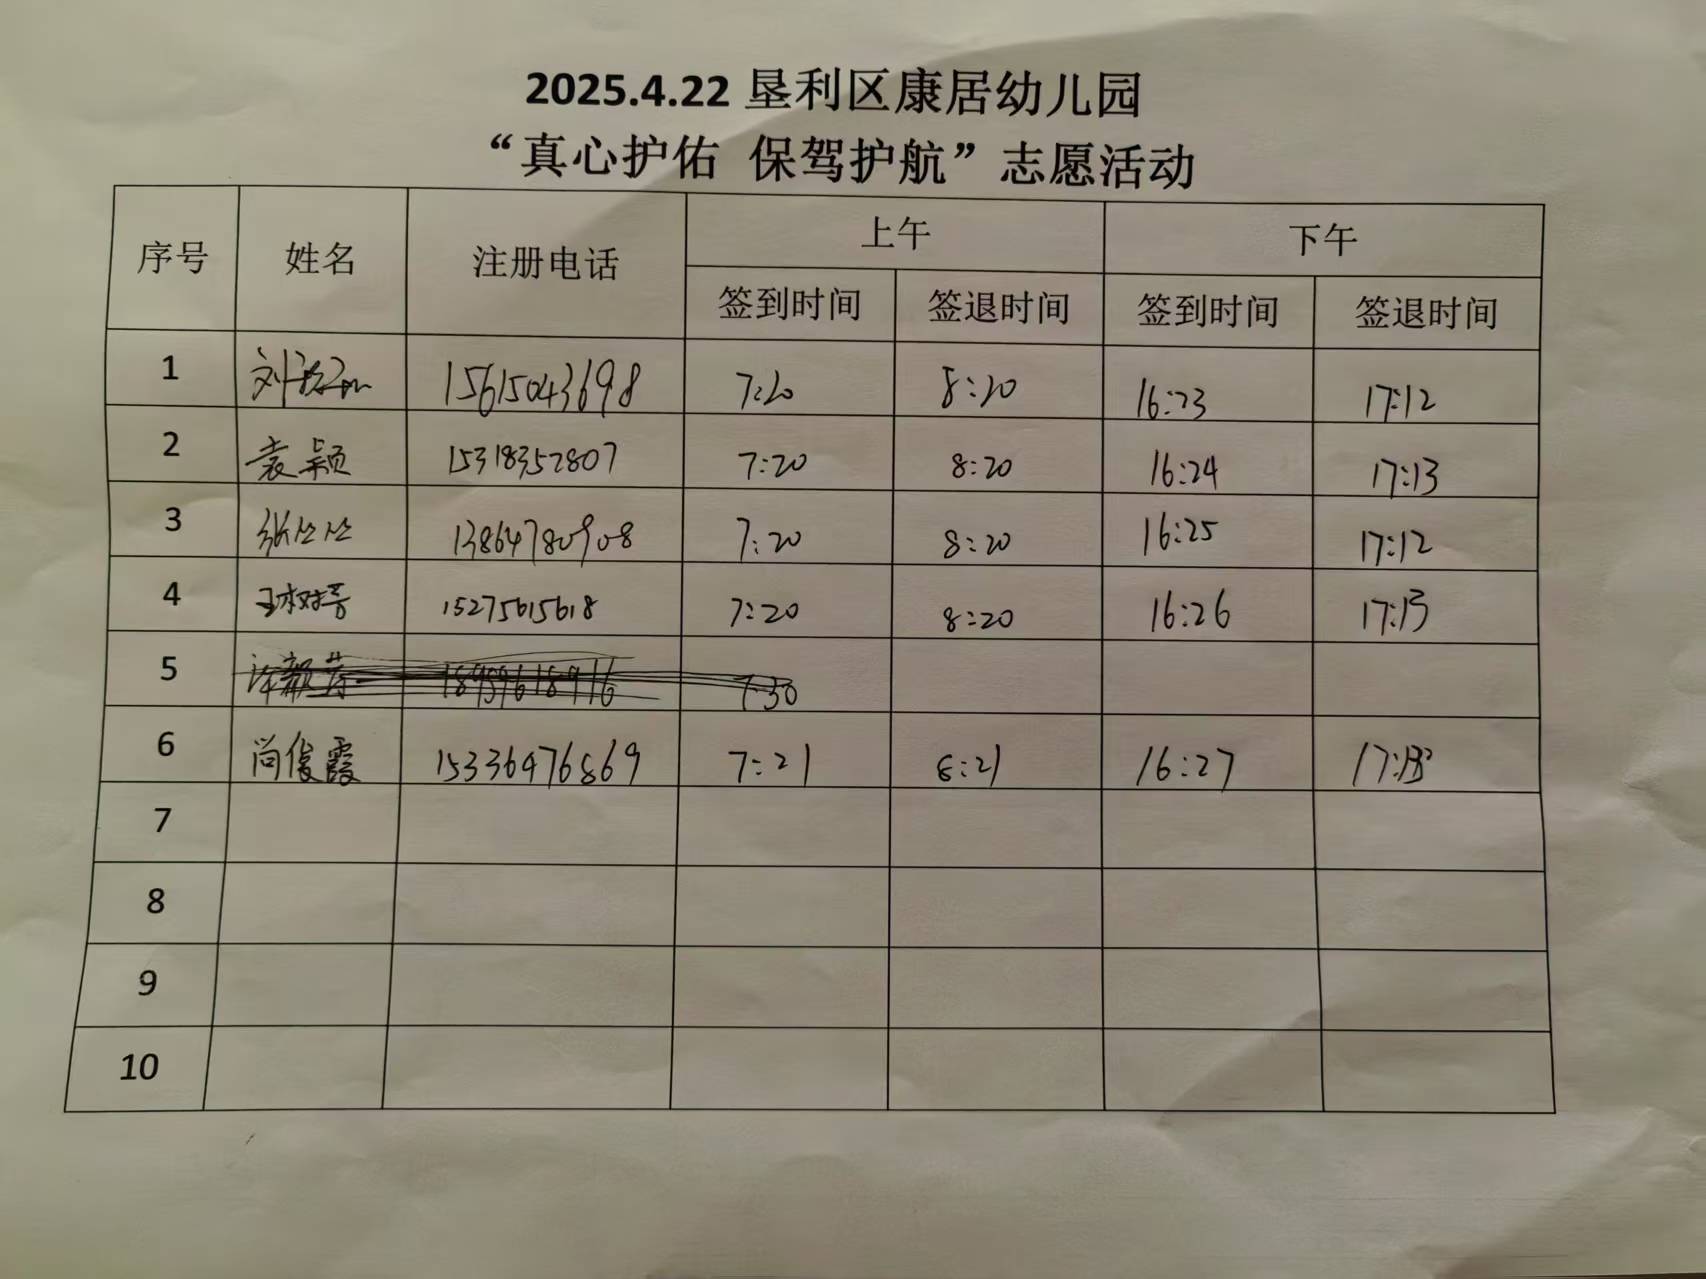 2025.4.22 垦利区康居幼儿园
“真心护佑 保驾护航”志愿活动
序号 姓名 注册电话 上午 下午
签到时间 签退时间 签到时间 签退时间
1 15615043698 7:20 8:20 16:23 17:12
2 袁颖 15318352807 7:20 8:20 16:24 17:13
3 张丛丛 13864780908 7:20 8:20 16:25 17:12
4 王树芳 15275615618 7:20 8:20 16:26 17:13
5 7:30
6 尚俊霞 15336476869 7:21 8:21 16:27 17:13
7
8
9
10